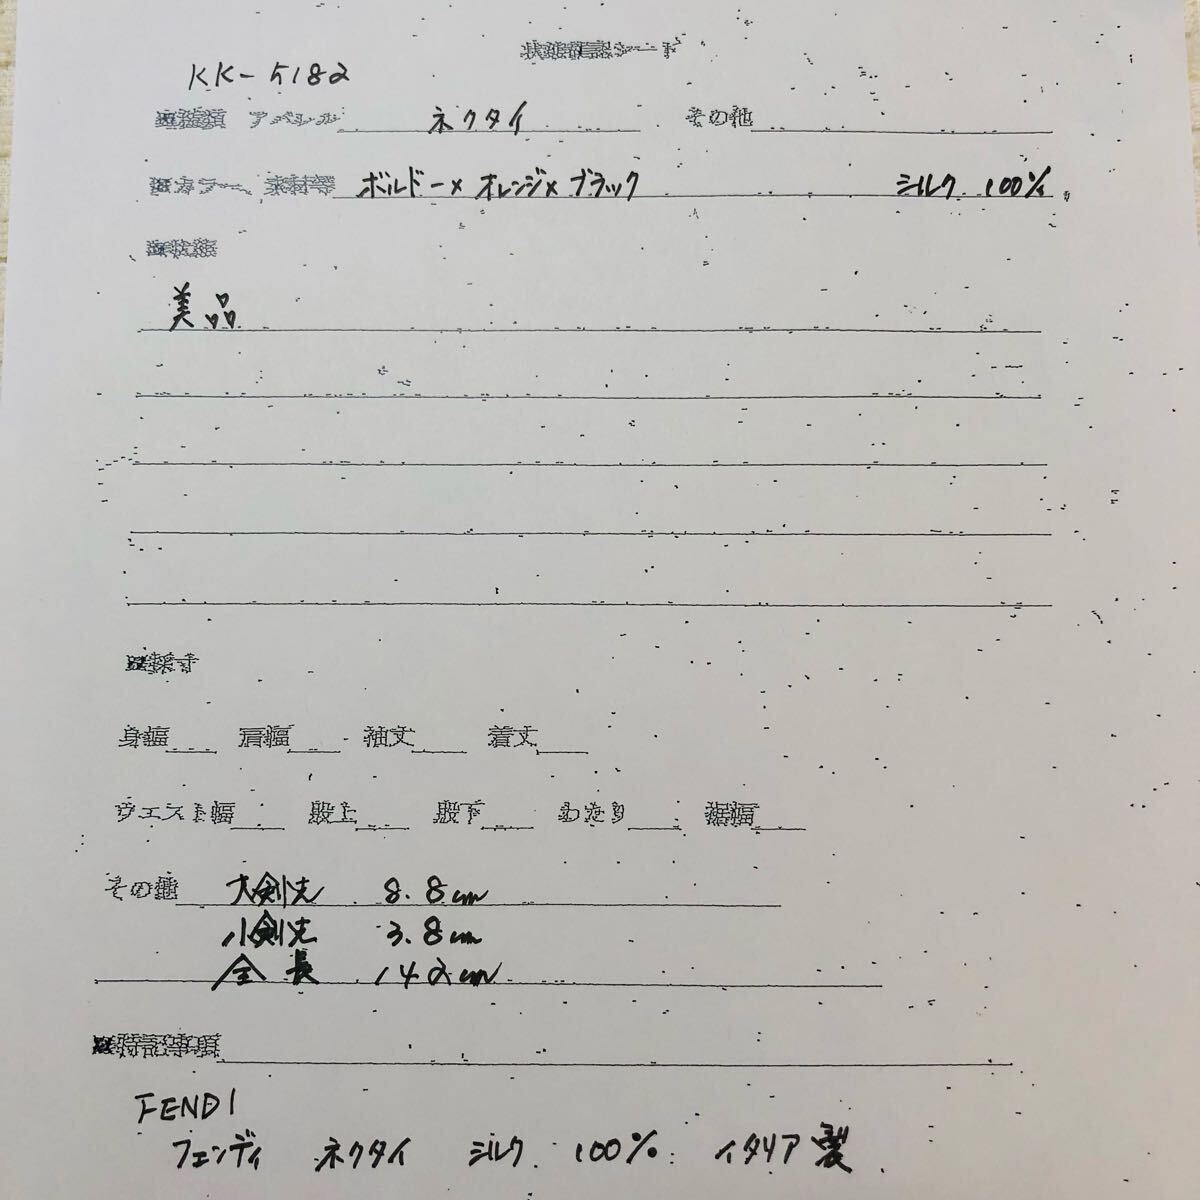 状態確認シート
KK-5182
■種類 アパレル ネクタイ その他
■カラー、素材等 ボルドー×オレンジ×ブラック シルク 100%
■状態
美品
■採寸
身幅 肩幅 袖丈 着丈
ウエスト幅 股上 股下 わたり 裾幅
その他 大剣先 8.8cm
小剣先 3.8cm
全長 142cm
■特記事項
FENDI
フェンディ ネクタイ シルク 100% イタリア製